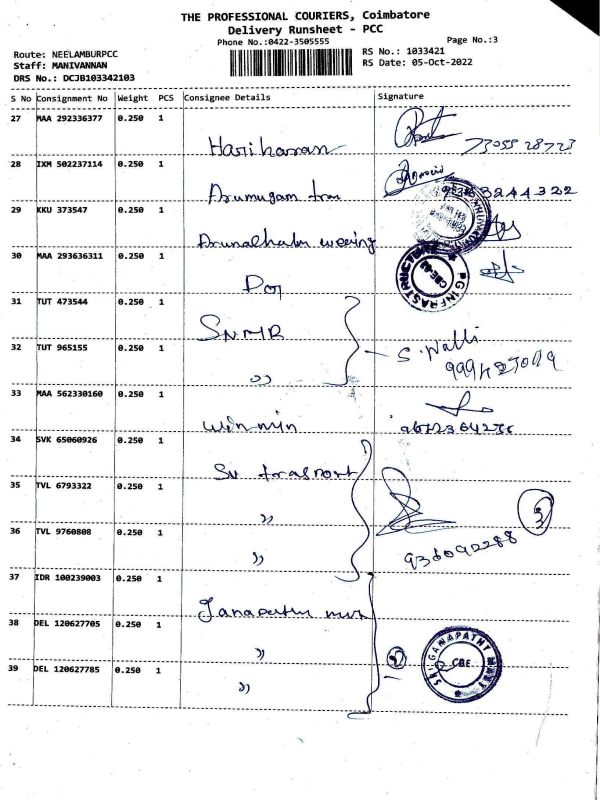 THE PROFESSIONAL COURIERS, Coimbatore
Delivery Runsheet - PCC
Phone No.:0422-3505555
Page No.:3
Route: NEELAMBURPCC
RS No.: 1033421
Staff: MANIVANNAN
RS Date: 05-Oct-2022
DRS No.: DCJB103342103
S No Consignment No Weight PCS Consignee Details Signature
27 MAA 292336377 0.250 1
Hariharan
28 IXM 502237114 0.250 1
Arumugam
29 KKU 373547 0.250 1
30 MAA 293636311 0.250 1
PG INFRASTRUCTURE
CBE-62
31 TUT 473544 0.250 1
SNMR
32 TUT 965155 0.250 1
S. Valli
"
33 MAA 562330160 0.250 1
34 SVK 65060926 0.250 1
35 TVL 6793322 0.250 1
"
3
36 TVL 9760808 0.250 1
"
37 IDR 100239003 0.250 1
38 DEL 120627705 0.250 1
"
SRI GANAPATHY
CBE
39 DEL 120627785 0.250 1
"